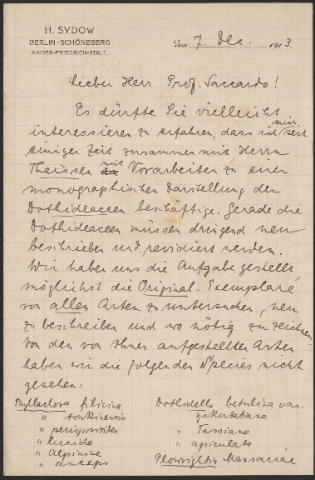 H. SYDOW
BERLIN-SCHÖNEBERG
KAISER-FRIEDRICH-STR.
den 7. Dec. 1913.
Lieber Herr Prof. Saccardo!
Es dürfte Sie vielleicht
interessieren zu erfahren, dass ich mich seit
einiger Zeit zusammen mit Herrn
Theissen mit Vorarbeiten zu einer
monographischen Darstellung der
Dothideaceen beschäftige. Gerade die
Dothideaceen müssen dringend neu
beschrieben und revidiert werden.
Wir haben uns die Aufgabe gestellt
möglichst die Original-Exemplare
von allen Arten zu untersuchen, neu
zu beschreiben und wo nötig zu zeichnen.
Von den von Ihnen aufgestellten Arten
haben wir die folgenden Species nicht
gesehen:
Phyllachora filicina
" tonkinensis
"
" lucida
" alpinina
" anceps
Dothidella betulina var.
yakutatiana
" Tassiana
" apiculata
Plowrightia Massariae